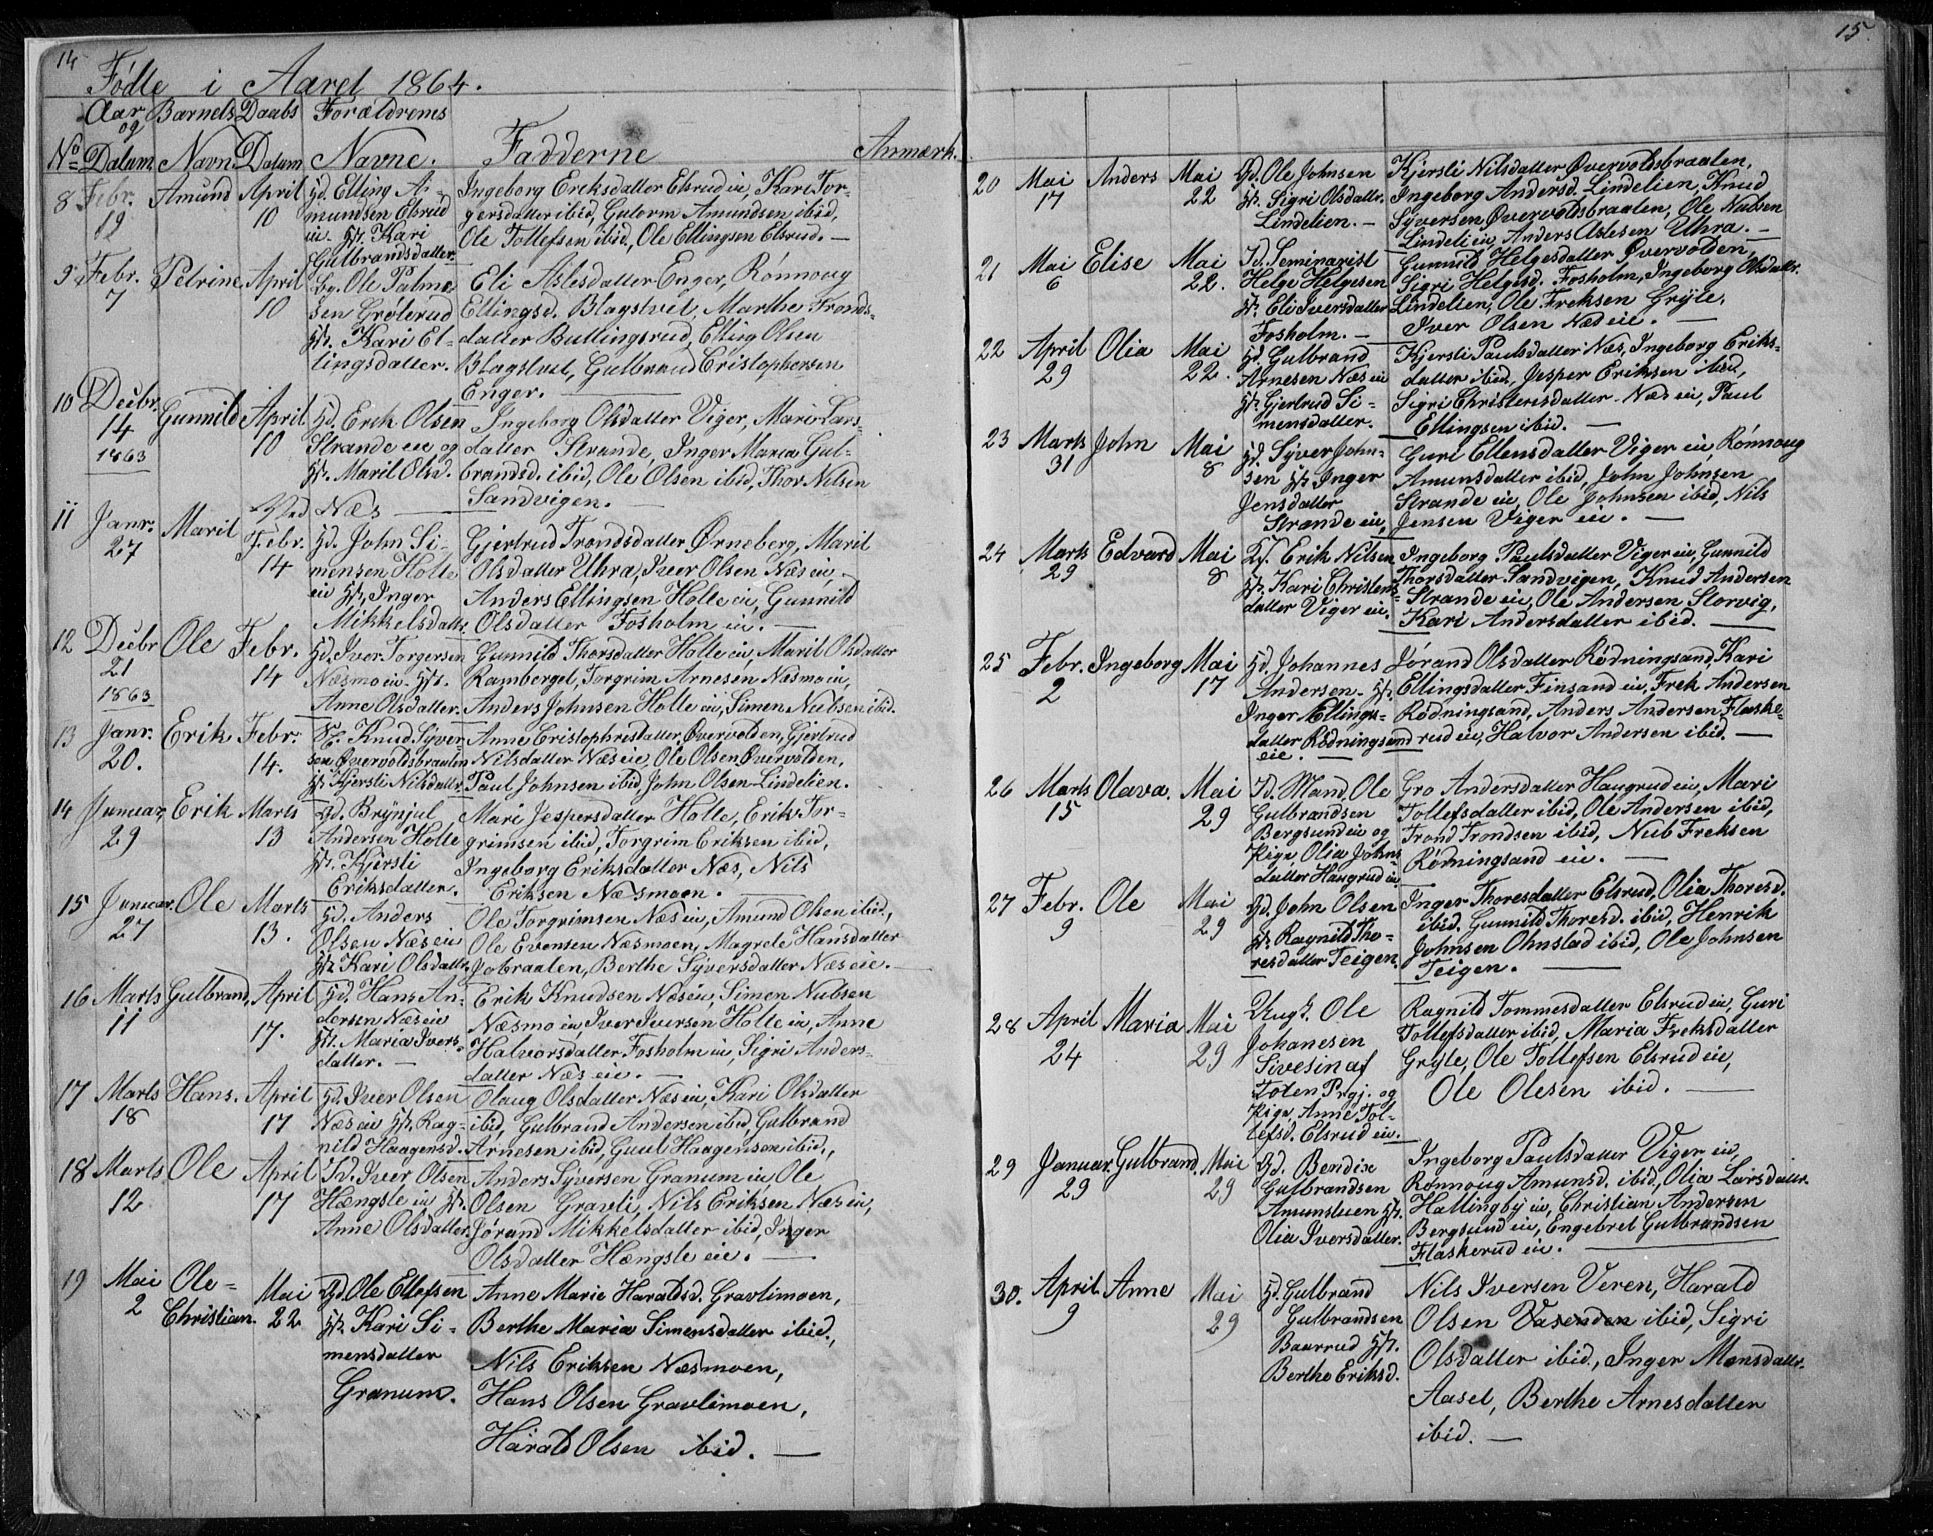 14
Födte i Aaret 1864.
Aar og Barnets Daabs Forældrenes
No Datum Navn Datum Navne. Fadderne Anmærk.
8 Febr. 19 Amund April 10
Gd. Elling A-
mundsen Elsrud
eie. H. Kari
Gulbrandsdatter.
Ingeborg Eriksdatter Elsrud eie, Kari Tor-
gersdatter ibid, Gutorm Amundsen ibid,
Ole Tollefsen ibid, Ole Ellingsen Elsrud. —
9 Febr. 7 Petrine April 10
Ole Palme-
sen Grölerud
H. Kari El-
lingsdatter.
Eli Aslesdatter Enger, Rönnoug
Ellingsd. Blagstvet, Marthe Tronds-
datter Bullingsrud, Elling Olsen
Blagstvet, Gulbrand Cristophersen
Enger.
10 Decbr. 14 1863 Gunnild April 10
Gd. Erik Olsen
Strande eie og
H. Marit Olsd.
Ingeborg Olsdatter Viger, Mari Lars-
datter Strande, Inger Maria Gul-
brandsd. ibid, Ole Olsen ibid, Thor Nilsen
Sandvigen.
Ved Næs
11 Janr. 27 Marit Febr. 14
Gd. John Si-
mensen Holte
eie H. Inger
Mikkelsdatt.
Gjertrud Trondsdatter Ørneberg, Marit
Olsdatter Uhra, Iver Olsen Næs eie,
Anders Ellingsen Holte eie, Gunnild
Olsdatter Fosholm eie. —
12 Decbr 21 1863 Ole Febr. 14
Gd. Iver Torgersen
Næsmo eie. H.
Anne Olsdatter.
Gunnild Thorsdatter Holte eie, Marit Olsdatter
Ramberget, Torgrim Arnesen Næsmo eie,
Anders Johnsen Holte eie, Simen Nubsen ibid.
13 Janr. 20. Erik Febr. 14.
Knud Syver-
sen Øvervoldsbraaten
H. Kjersti Nilsdattr.
Anne Cristophrisdatter Øvervolden, Gjertrud
Nilsdatter Næs eie, Ole Olsen Øvervolden,
Paul Johnsen ibid, John Olsen Lindelien.
14 Januar 29 Erik Marts 13
Gd. Brynjul
Andersen Holte
H. Kjersti
Eriksdatter.
Mari Jespersdatter Holte, Erik Tor-
grimsen ibid, Torgrim Eriksen ibid,
Ingeborg Eriksdatter Næs, Nils
Eriksen Næsmoen.
15 Januar. 27 Ole Marts 13.
Gd. Anders
Olsen Næs eie
H. Kari Olsdatt.
Ole Torgrimsen Næs eie, Amund Olsen ibid,
Ole Evensen Næsmoen, Magrete Hansdatter
Jobraaten, Berthe Syversdatter Næs eie. —
16 Marts 11 Gulbrand, April 17.
Gd. Hans An-
dersen Næs eie
H. Maria Ivers-
datter. —
Erik Knudsen Næs eie, Simen Nubsen
Næsmo eie, Iver Iversen Holte eie, Anne
Halvorsdatter Fosholm eie, Sigri Anders-
datter Næs eie. —
17 Marts 18 Hans. April 17
Gd. Iver Olsen
Næs eie H. Rag-
nild Haagensd.
Olaug Olsdatter Næs eie, Kari Olsdatter
ibid, Gulbrand Andersen ibid, Gulbrand
Arnesen ibid, Guul Haagensen ibid.,
18 Marts 12 Ole April 17
Id. Iver Olsen
Hængsle eie H.
Anne Olsdatter.
Anders Syversen Granum eie Ole
Olsen Gravli, Nils Eriksen Næs eie,
Jörand Mikkelsdatter ibid, Inger
Olsdatter Hængsle eie. —
19 Mai 2 Ole- Christian. Mai 22
Gd. Ole Ellefsen
H. Kari Si-
mensdatter
Granum.
Anne Marie Haraldsd. Gravlimoen,
Berthe Maria Simensdatter ibid.,
Nils Eriksen Næsmoen,
Hans Olsen Gravlimoen,
Harald Olsen ibid. —
15.
20 Mai 17 Anders Mai 22
Gd. Ole Johnsen
H. Sigri Olsdatter.
Lindelien. —
Kjersti Nilsdatter Øvervoldsbraaten,
Ingeborg Andersd. Lindelien, Knud
Syversen Øvervoldsbraaten, Ole Nubsen
Lindeli eie, Anders Aslesen Uhra. —
21 Mai 6 Elise Mai 22.
Id. Seminarist
Helge Helgesen
H. Eli Iversdatter
Fosholm. —
Gunnild Helgesdatter Øvervolden,
Sigri Helgesd. Fosholm, Ingeborg Olsdattr.
Lindelien, Ole Freksen Gryte,
Iver Olsen Næs eie. —
22 April 29 Olia Mai 22.
Gd. Gulbrand
Arnesen Næs eie
H. Gjertrud Si-
mensdatter.
Kjersti Paulsdatter Næs, Ingeborg Eriks-
datter ibid, Jesper Eriksen ibid,
Sigri Christensdatter Næs eie, Paul
Ellingsen ibid. —
23 Marts 31 John Mai 8
Gd. Syver John-
sen H. Inger
Jensdatter
Strande eie,
Guri Ellensdatter Viger eie, Rönnoug
Amunsdatter ibid, John Johnsen
Strande eie, Ole Johnsen ibid, Nils
Jensen Viger eie. —
24 Marts 29 Edvard Mai 8
Erik Nilsen
H. Kari Christens-
datter Viger eie.
Ingeborg Paulsdatter Viger eie, Gunnild
Thorsdatter Sandvigen, Knud Andersen
Strande eie, Ole Andersen Storvig,
Kari Andersdatter ibid. —
25 Febr. 2 Ingeborg Mai 17
Gd. Johannes
Andersen. H.
Inger Ellings-
datter Rödningsand
eie. —
Jörand Olsdatter Rödningsand, Kari
Ellingsdatter Finsand eie, Frek Andersen
Rödningsand, Anders Andersen Flaske-
rud eie, Halvor Andersen ibid. —
26 Marts 15 Olava. Mai 29
Id. Mand, Ole
Gulbrandsen
Bergsund eie og
Pige, Olia Johns-
datter Haugrud eie
Gro Andersdatter Haugrud eie, Mari
Tollefsdatter ibid, Ole Andersen ibid,
Trond Trondsen ibid, Nub Freksen
Rödningsand eie. —
27 Febr. 9 Ole Mai 29
Gd. John Olsen
H. Ragnild Tho-
resdatter Teigen.
Inger Thoresdatter Elsrud, Olia Thoresd.
ibid. Gunnild Thoresd. ibid, Henrik
Johnsen Ohnstad ibid, Ole Johnsen
Teigen. —
28 April 24 Maria Mai 29
Ungk. Ole
Johanesen
Sivesin af
Toten Prgj. og
Pige, Anne Tol-
lefsd. Elsrud eie.
Ragnild Tommesdatter Elsrud eie, Guri
Tollefsdatter ibid, Maria Freksdatter
Gryte, Ole Tollefsen Elsrud eie,
Ole Olesen ibid. —
29 Januar. 29 Gulbrand. Mai 29
Gd. Bendix
Gulbrandsen
Amunsteien H.
Olia Iversdatter.
Ingeborg Paulsdatter Viger eie,
Rönnoug Amunsd. ibid, Olia Larsdatter.
Hallingby eie, Christian Andersen
Bergsund eie, Engebret Gulbrandsen
Flaskerud eie. —
30. April. 9 Anne Mai 29
Gd. Gulbrand
Gulbrandsen
Baarrud H.
Berthe Eriksd.
Nils Iversen Veren, Harald
Olsen Vasenden ibid, Sigri
Olsdatter ibid., Inger Monsdatter.
Aaset, Berthe Arnesdatter
ibid. —